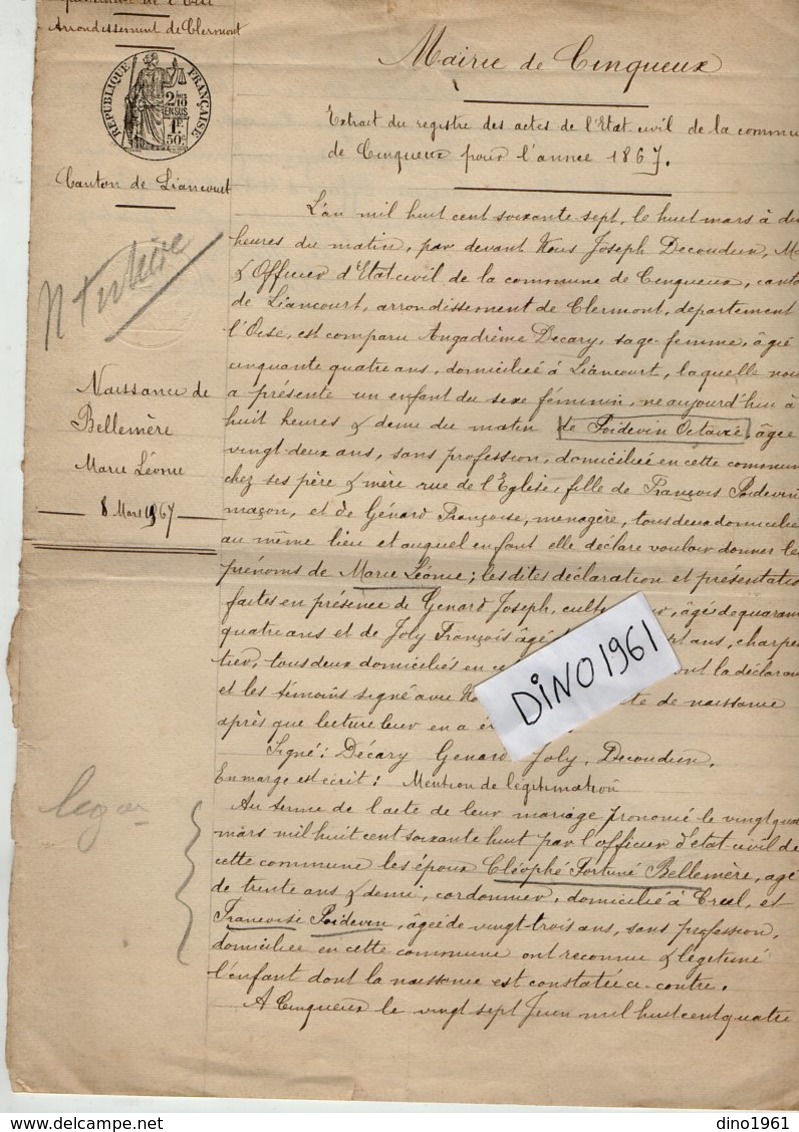 Arrondissement de Clermont
RÉPUBLIQUE FRANÇAISE
2/10
EN SUS
1F
50c
Canton de Liancourt
Naissance de
Bellemère
Marie Léonie
8 Mars 1867
Mairie de Cinqueux
Extrait du registre des actes de l'Etat civil de la commu
de Cinqueux pour l'année 1867.
L'an mil huit cent soixante sept, le huit mars à di
heures du matin, par devant Nous Joseph Decoudun, M
& Officier d'Etat civil de la commune de Cinqueux, canto
de Liancourt, arrondissement de Clermont, département
l'Oise, est comparu Angadrème Decary, sage-femme, âgée
cinquante quatre ans, domiciliée à Liancourt, laquelle nou
a présenté un enfant du sexe féminin, né aujourd'hui à
huit heures & demi du matin de Poidevin Octavie, âgée
vingt-deux ans, sans profession, domiciliée en cette commun
chez ses père & mère rue de l'Eglise, fille de François Poidevin
maçon, et de Génard Françoise, ménagère, tous deux domicilié
au même lieu et auquel enfant elle déclare vouloir donner les
prénoms de Marie Léonie; les dites déclaration et présentatio
faites en présence de Genard Joseph, cult âgé de quaran
quatre ans et de Joly François âgé pt ans, charpen
tier, tous deux domiciliés en ce ont la déclaran
et les témoins signé avec No te de naissance
après que lecture leur en a é
Signé: Décary Genard Joly, Decoudun.
En marge est écrit: Mention de légitimation
Au terme de l'acte de leur mariage prononcé le vingt qua
mars mil huit cent soixante huit par l'officier d'état civil de
cette commune les époux Cléophé Fortuné Bellemère, agé
de trente ans & demi, cordonnier, domicilié à Creil, et
Françoise Poidevin, âgée de vingt-trois ans, sans profession,
domiciliée en cette commune ont reconnu & légitimé
l'enfant dont la naissance est constatée ci-contre.
A Cinqueux le vingt sept Juin mil huit cent quatre
DINO1961
delcampe.net
dino1961